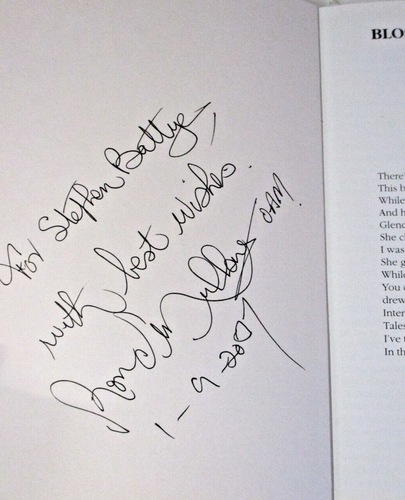 For Stephen Battye,
with best wishes.
Ron
OAM.
1-9-2007
BLO
There'
This b
While
And h
Glenc
She cl
I was
She g
While
You c
drew
Inter
Tales
I've t
In th